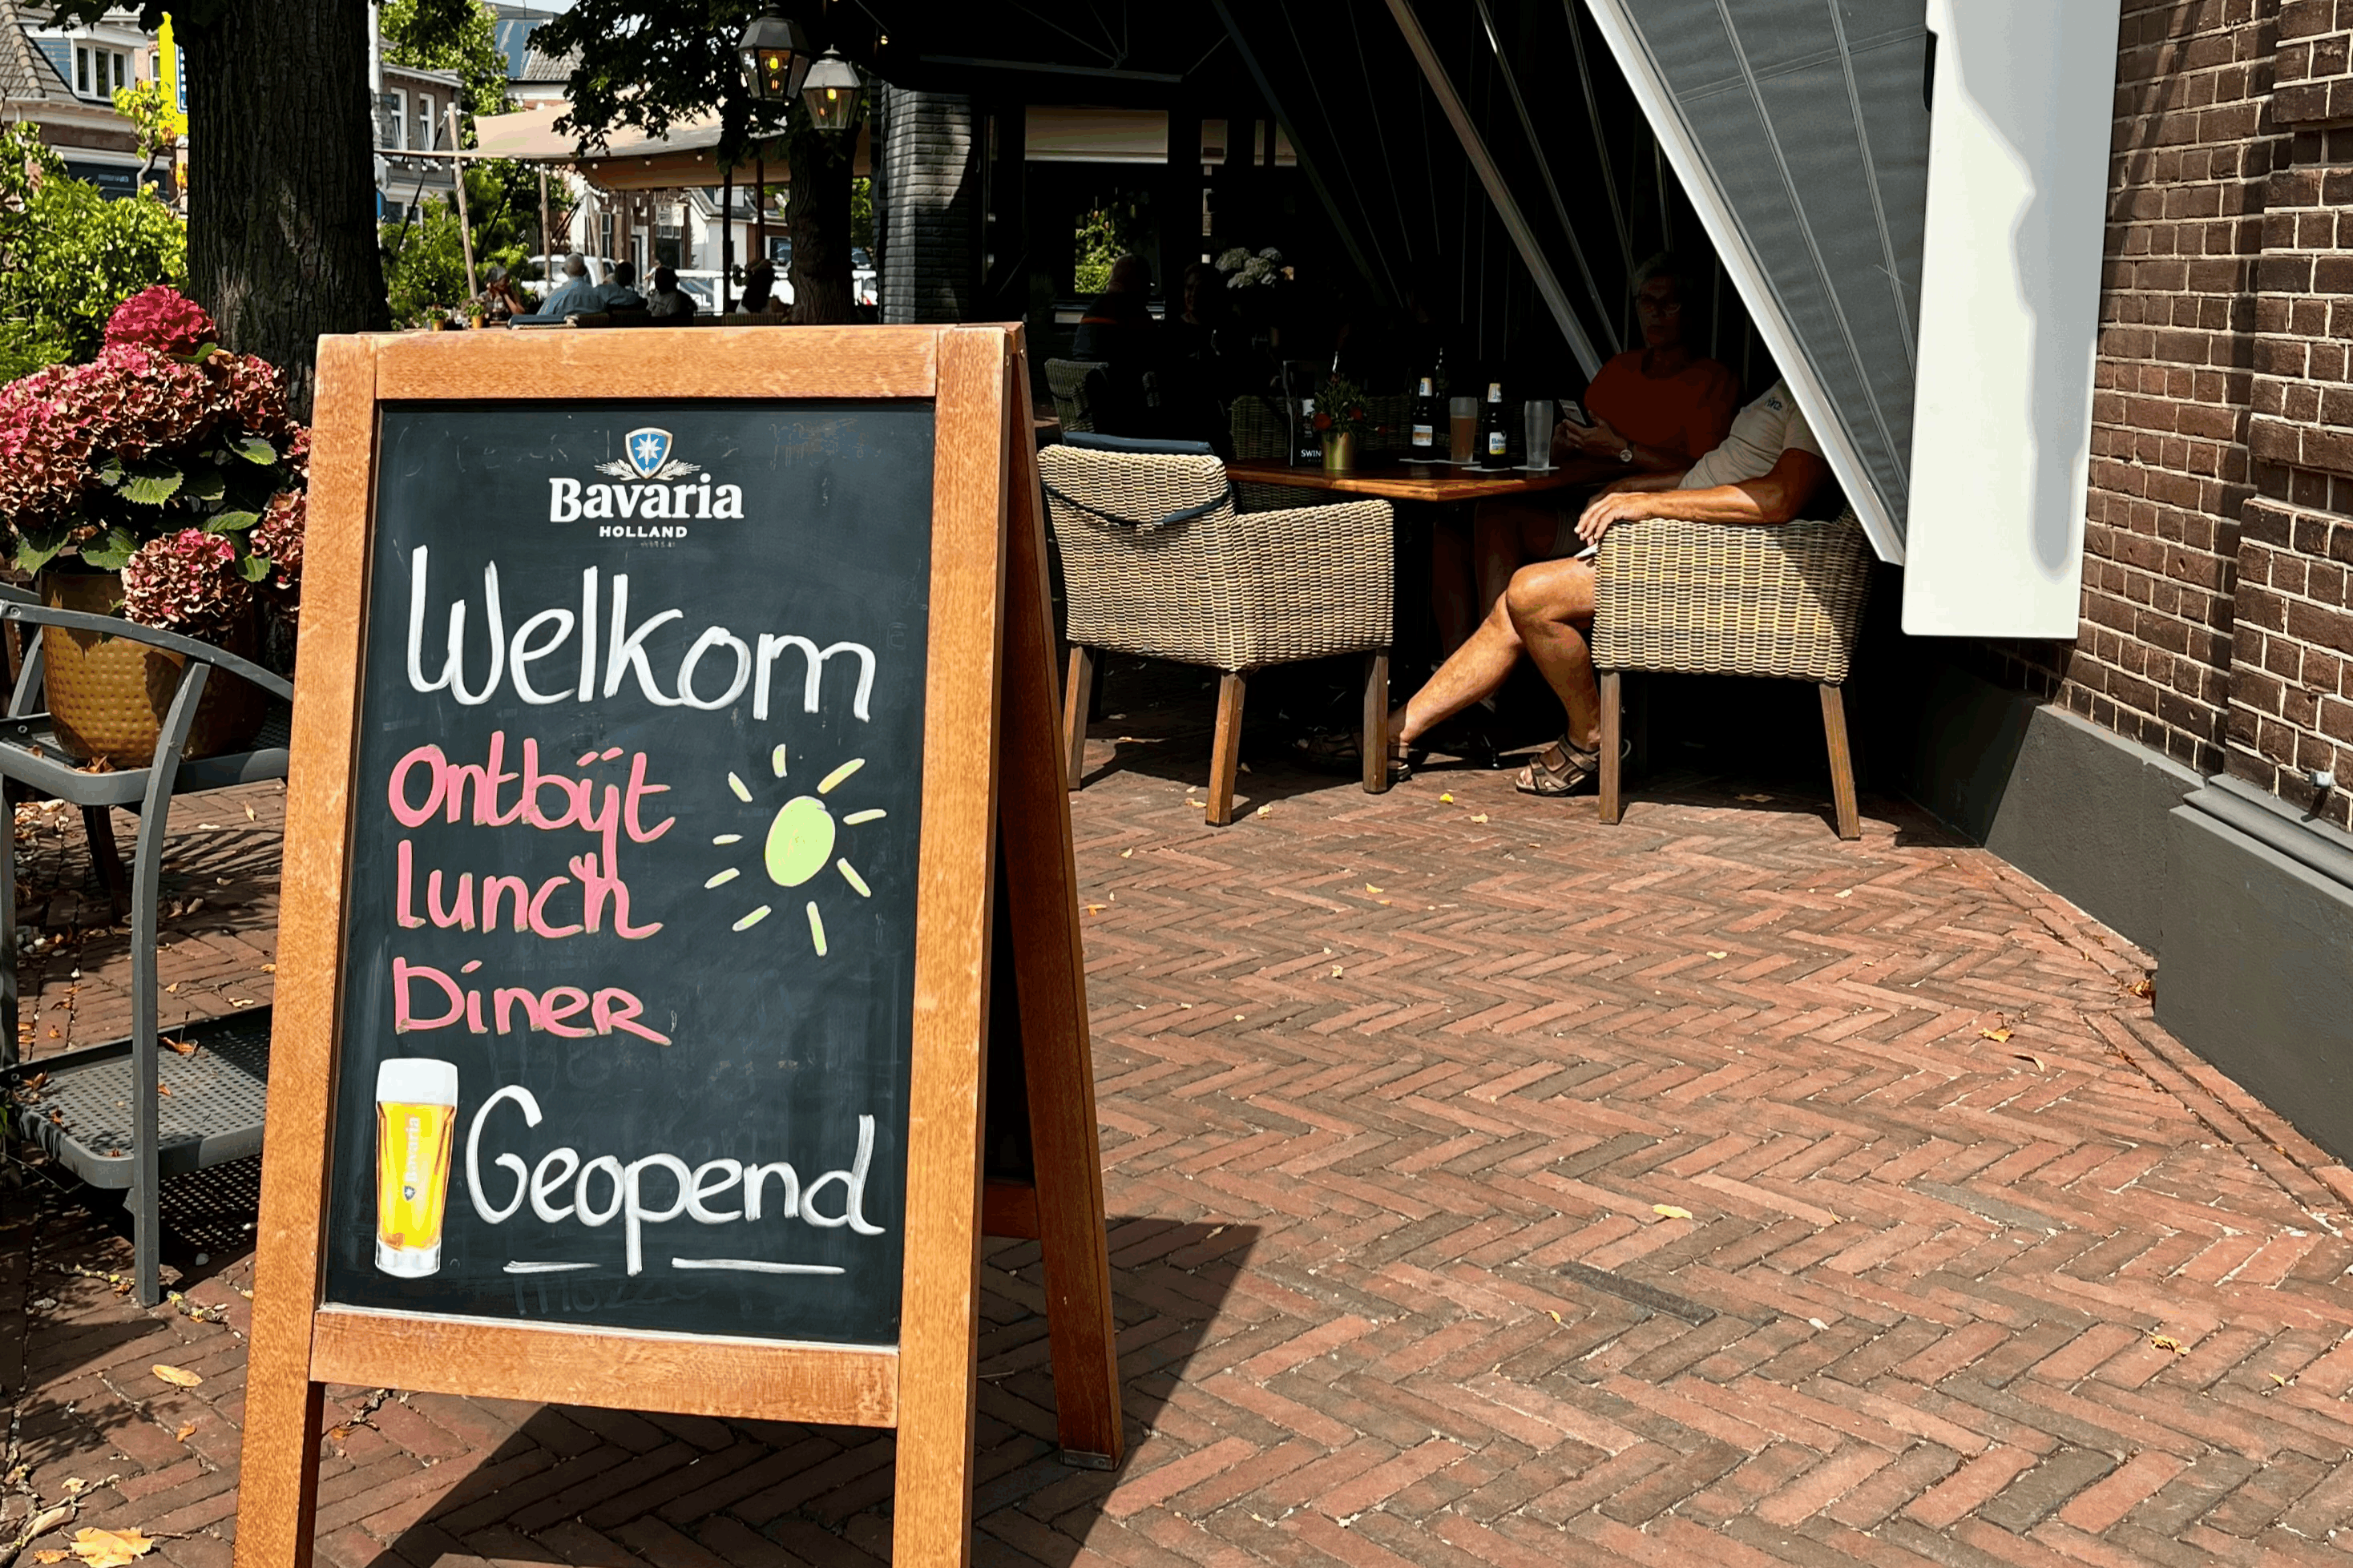 Bavaria
HOLLAND
Welkom
Ontbijt
lunch
Diner
Bavaria
Geopend